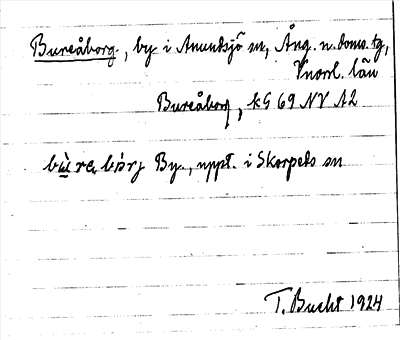 Bureåborg, by i Anundsjö sn, Ång. n. doms. tg,
Vnorl. län
Bureåborg, kG 69 NV A2
By., uppt. i Skorpeds sn
T. Bucht 1924